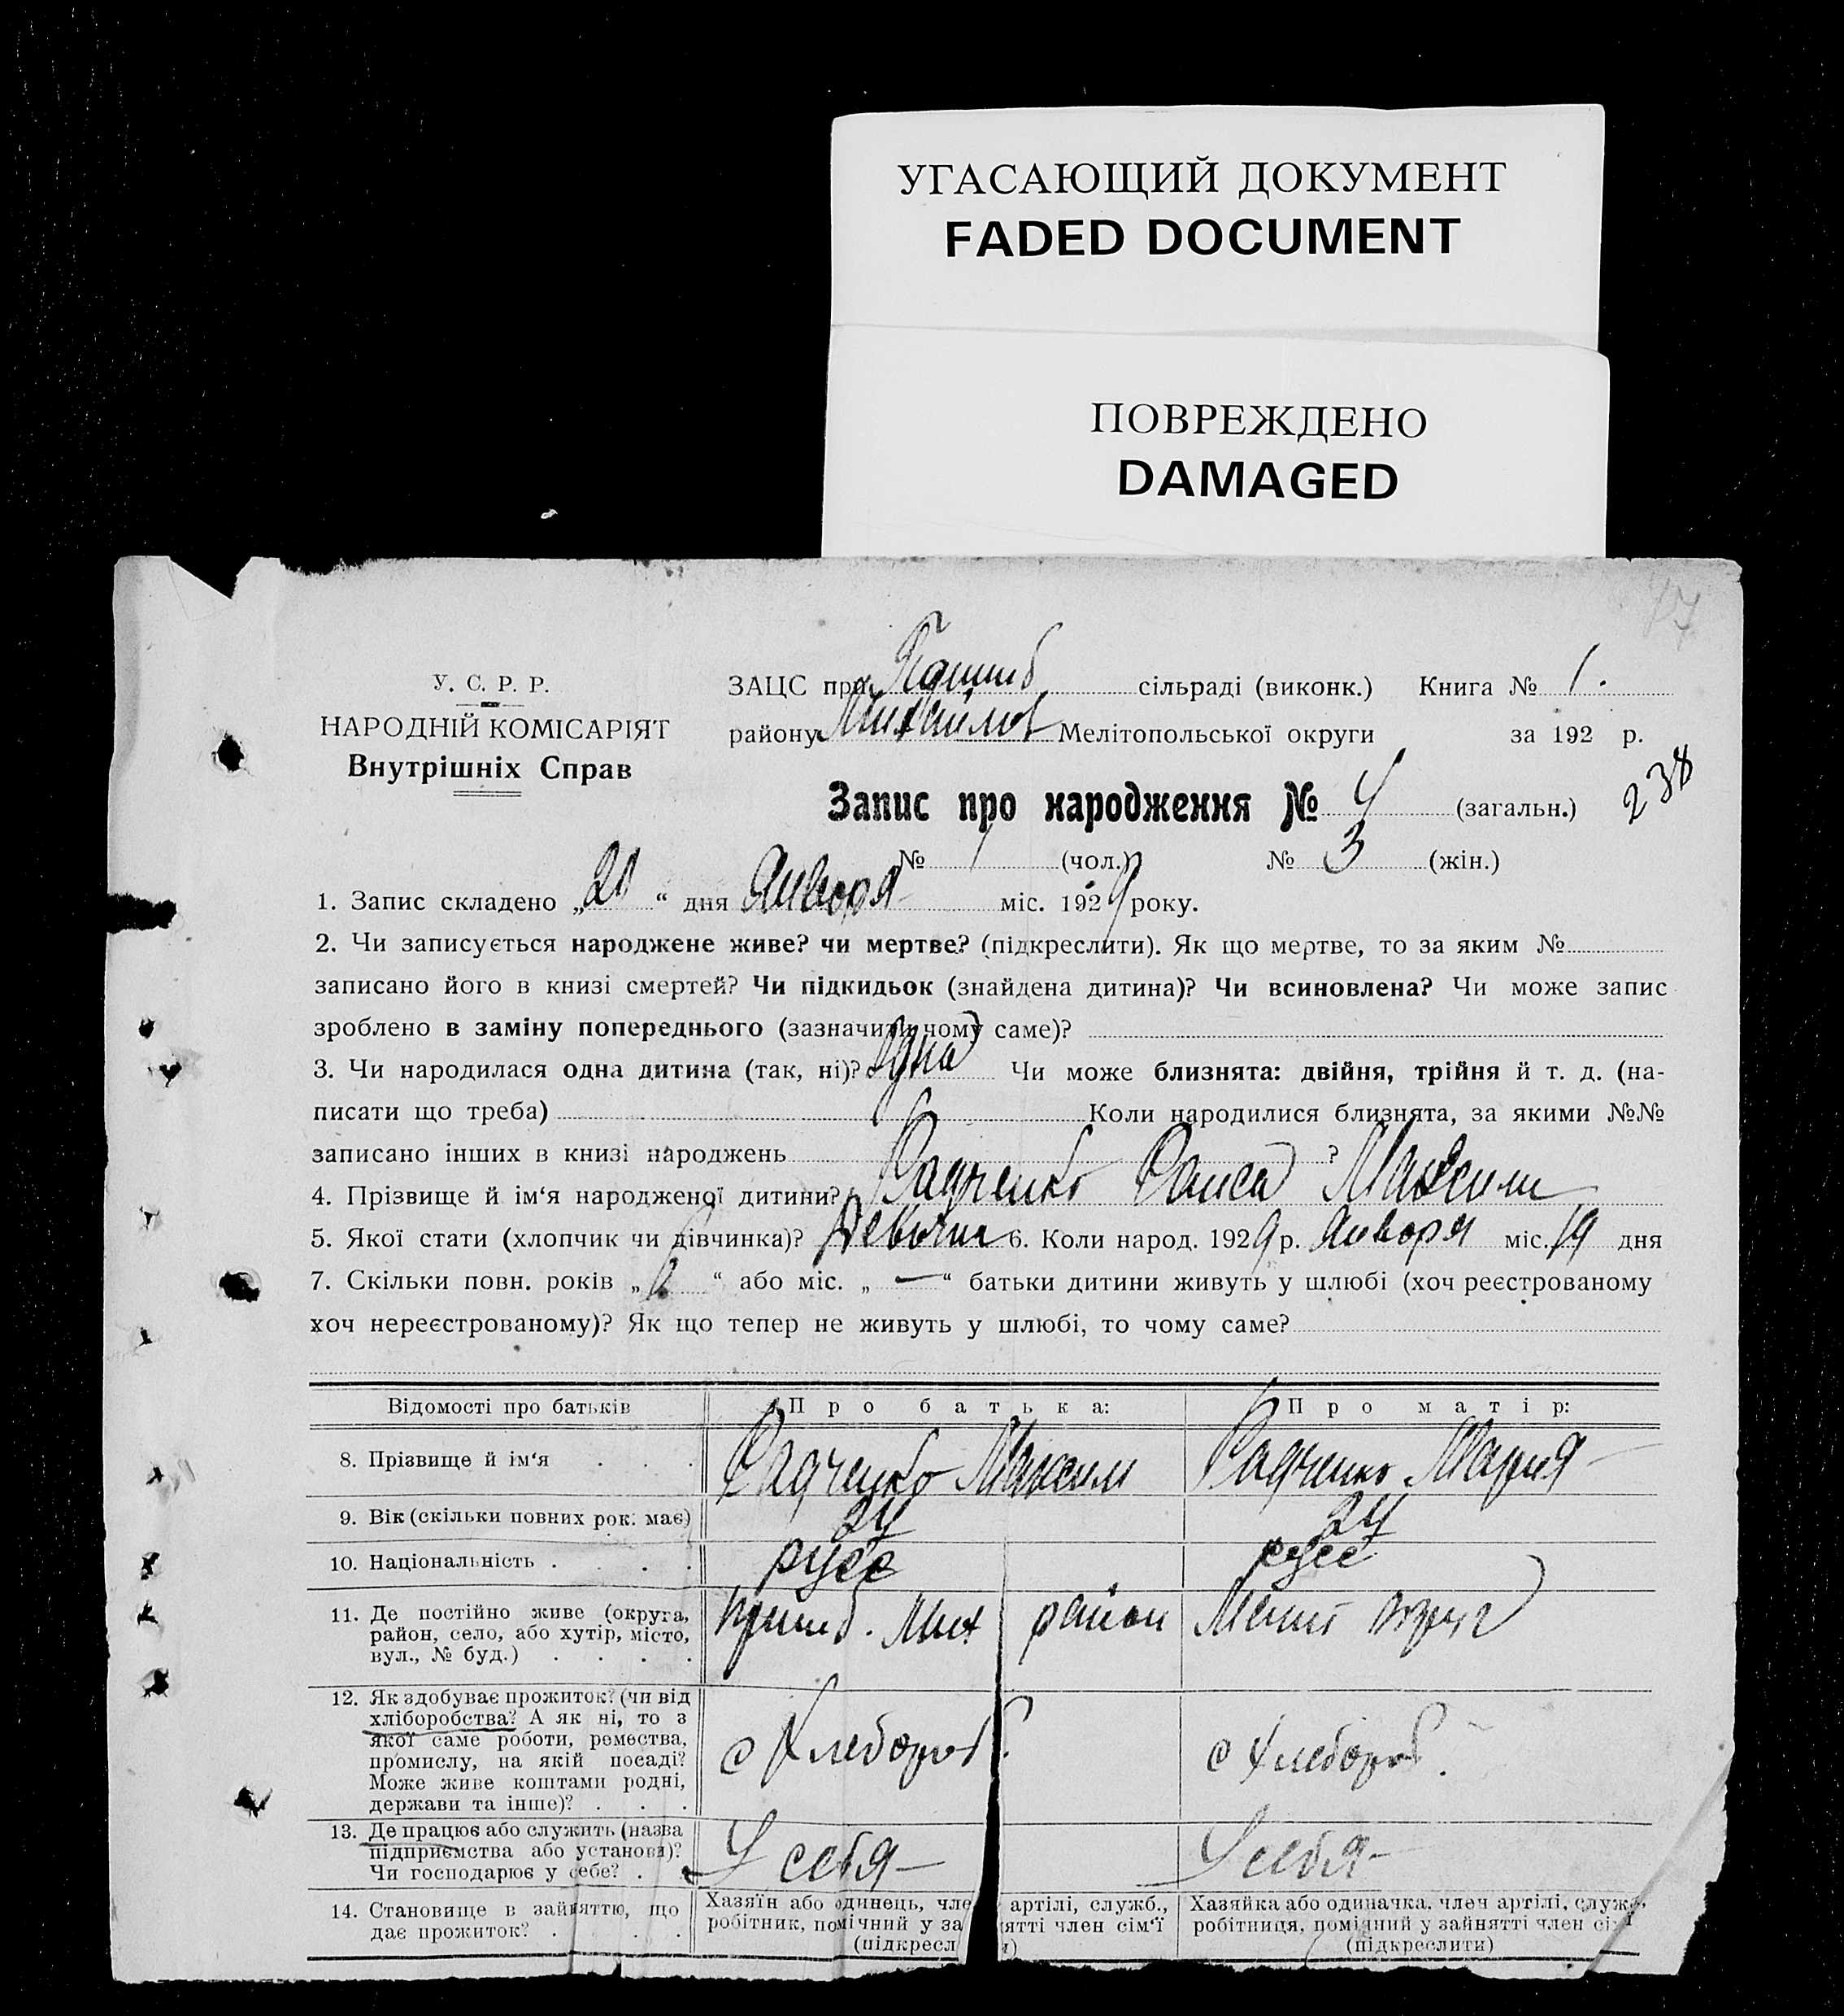 УГАСАЮЩИЙ ДОКУМЕНТ
FADED DOCUMENT
ПОВРЕЖДЕНО
DAMAGED
У. С. Р. Р.
НАРОДНІЙ КОМІСАРІЯТ
Внутрішніх Справ
ЗАЦС при сільраді (виконк.) Книга № 1.
району Михайлов Мелітопольської округи за 192 р.
238
Запис про народження № 4 (загальн.)
№ 1 (чол.) № 3 (жін.)
1. Запис складено „20“ дня Января міс. 1929 року.
2. Чи записується народжене живе? чи мертве? (підкреслити). Як що мертве, то за яким №
записано його в книзі смертей? Чи підкидьок (знайдена дитина)? Чи всиновлена? Чи може запис
зроблено в заміну попереднього (зазначити чому саме)?
3. Чи народилася одна дитина (так, ні)? одна Чи може близнята: двійня, трійня й т. д. (на-
писати що треба) Коли народилися близнята, за якими №№
записано інших в книзі народжень ?
4. Прізвище й ім‘я народженої дитини? Радченко Раиса Максим
5. Якої стати (хлопчик чи дівчинка)? Девочка 6. Коли народ. 1929 р. Января міс. 19 дня
7. Скільки повн. років „6“ або міс. „—“ батьки дитини живуть у шлюбі (хоч реєстрованому
хоч нереєстрованому)? Як що тепер не живуть у шлюбі, то чому саме?
Відомості про батьків Про батька: Про матір:
8. Прізвище й ім‘я . . . Радченко Максим Радченко Мария
9. Вік (скільки повних рок. має) 24 24
10. Національність . . . . русс русс
11. Де постійно живе (округа,
район, село, або хутір, місто,
вул., № буд.) . . . .
Пришиб. Мих район Мелит округ
12. Як здобуває прожиток? (чи від
хліборобства? А як ні, то з
якої саме роботи, ремества,
промислу, на якій посаді?
Може живе коштами родні,
держави та інше)? . . .
с Хлебороб. с Хлебороб.
13. Де працює або служить (назва
підприємства або установи)?
Чи господарює у себе? . .
У себя — У себя —
14. Становище в зайняттю, що
дає прожиток? . . . .
Хазяїн або одинець, чле артілі, служб.,
робітник, помічний у за ятті член сім‘ї
(підкресл и)
Хазяйка або одиначка, член артілі, служб.,
робітниця, помічний у зайнятті член сім‘ї
(підкреслити)